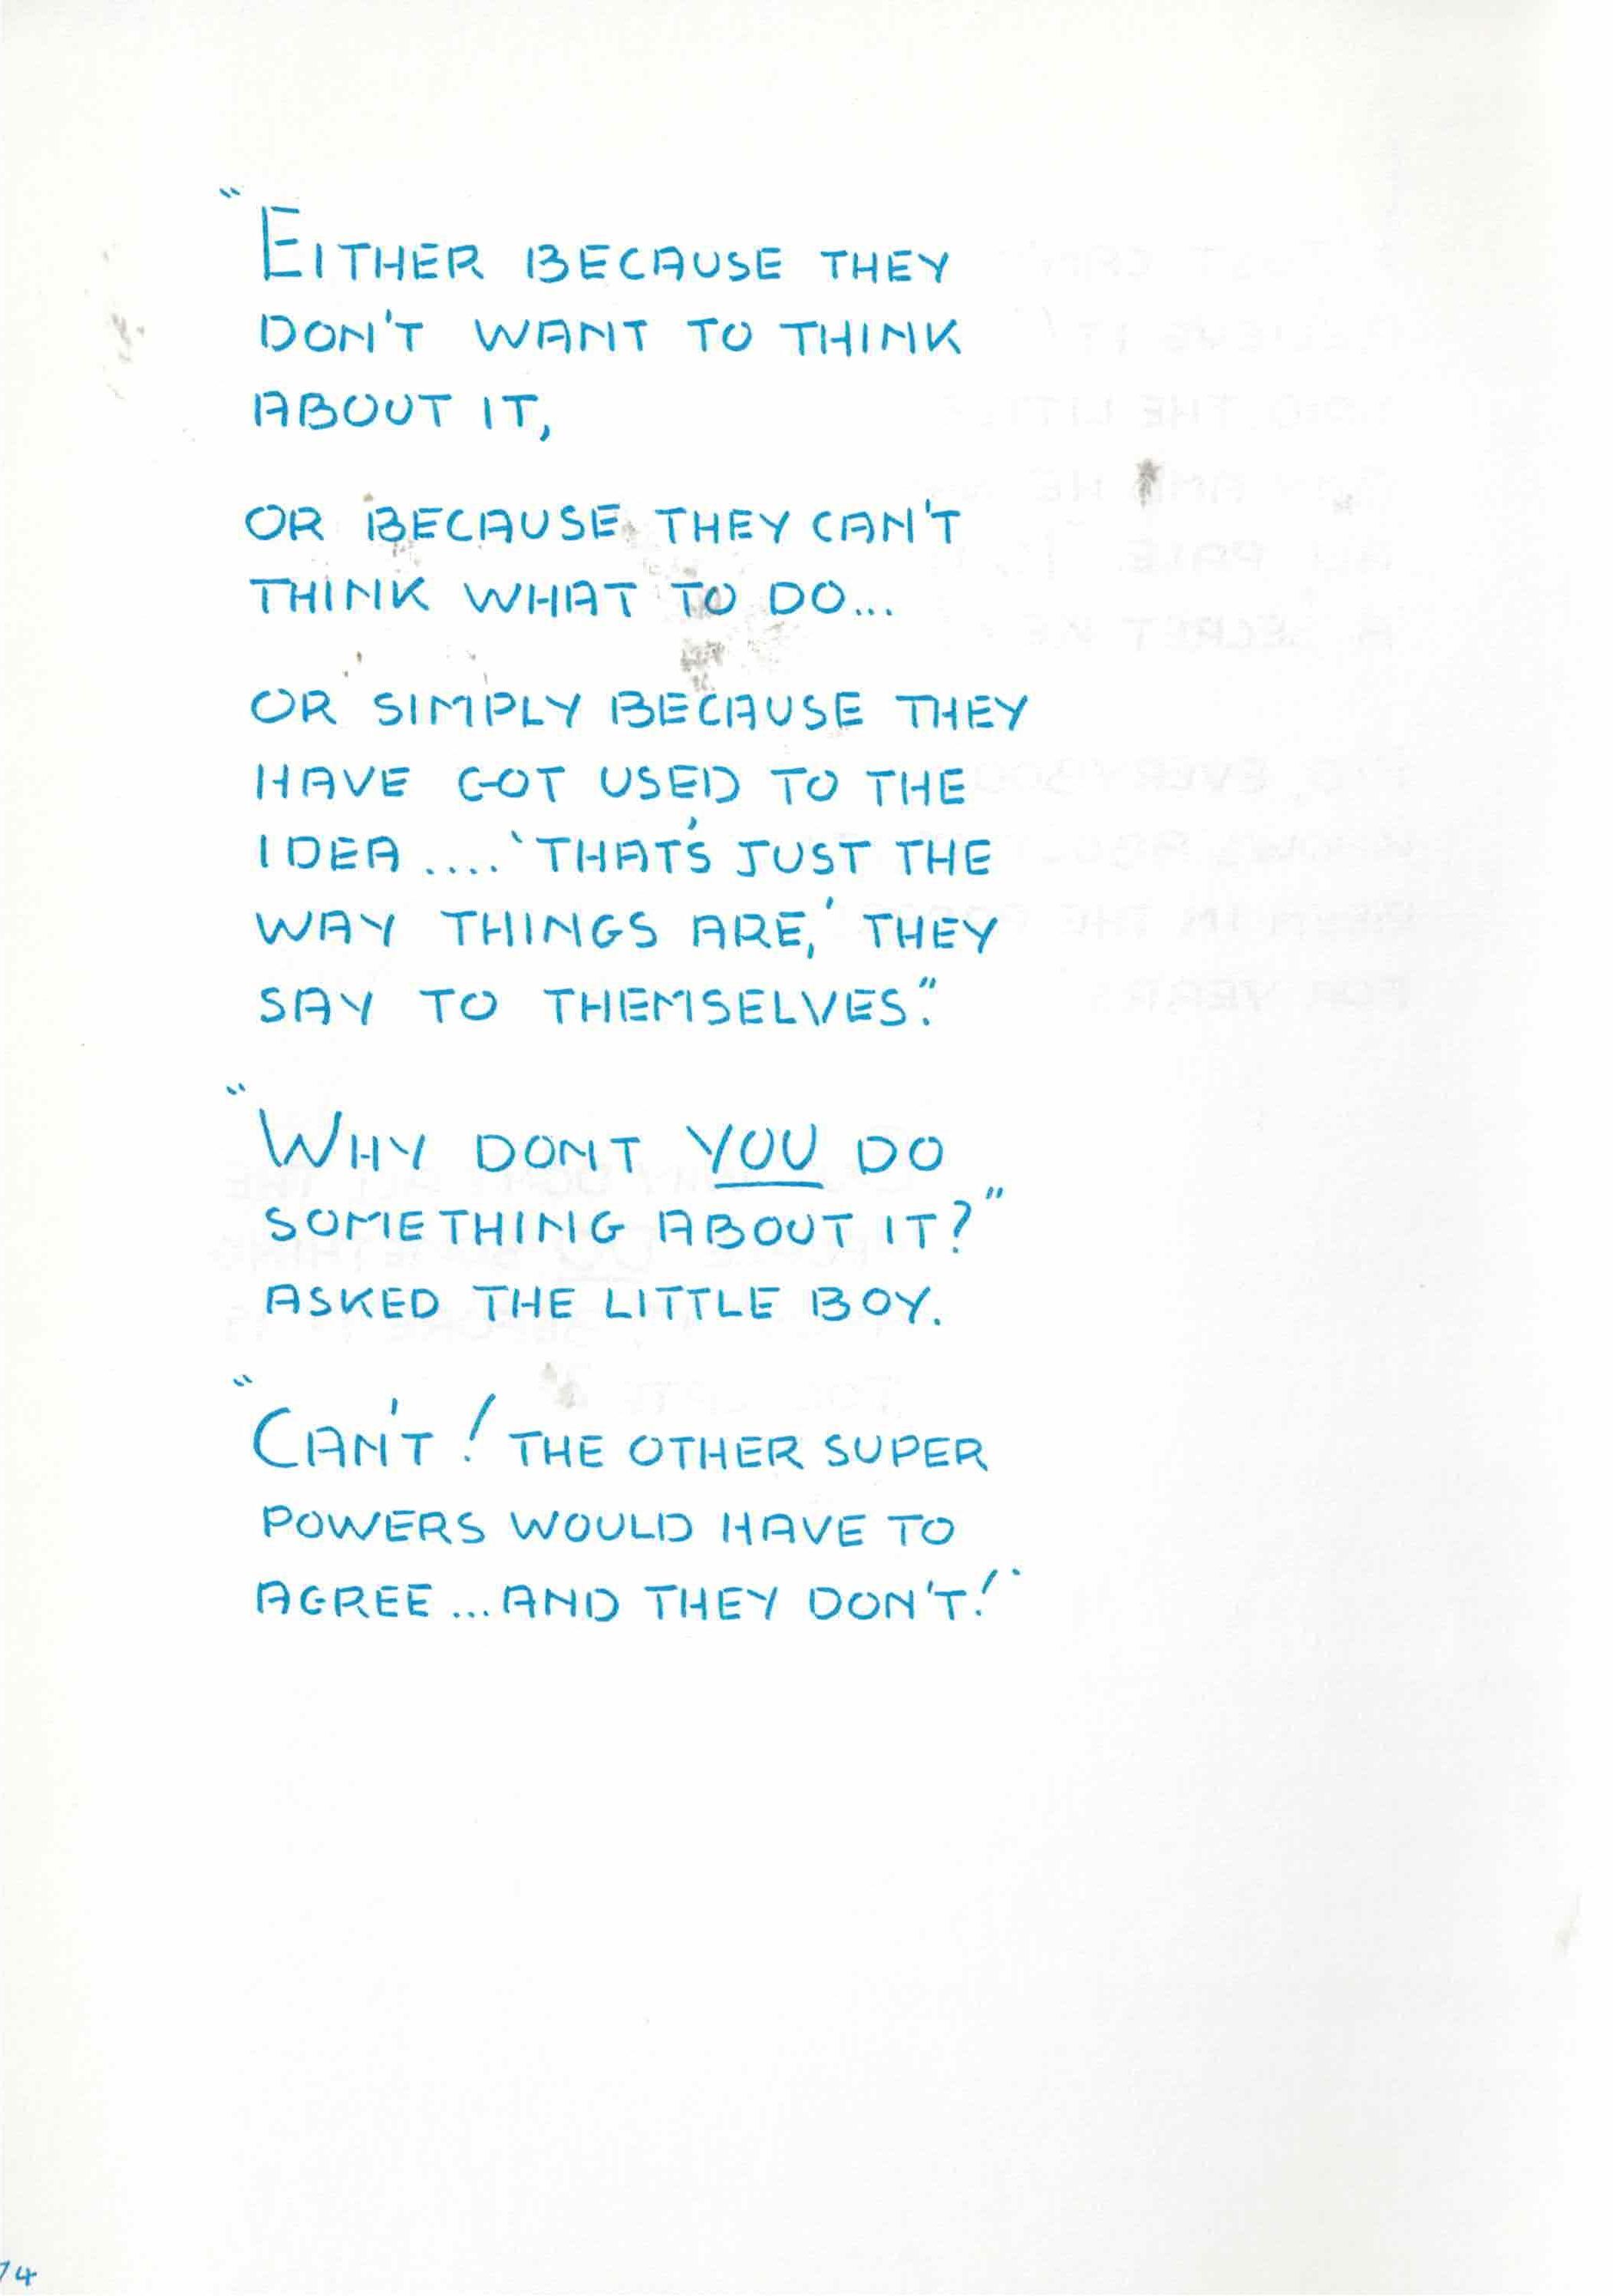 "EITHER BECAUSE THEY
DON'T WANT TO THINK
ABOUT IT,
OR BECAUSE THEY CAN'T
THINK WHAT TO DO...
OR SIMPLY BECAUSE THEY
HAVE GOT USED TO THE
IDEA .... 'THAT'S JUST THE
WAY THINGS ARE,' THEY
SAY TO THEMSELVES."
"WHY DONT YOU DO
SOMETHING ABOUT IT?"
ASKED THE LITTLE BOY.
"CAN'T! THE OTHER SUPER
POWERS WOULD HAVE TO
AGREE ... AND THEY DON'T!"